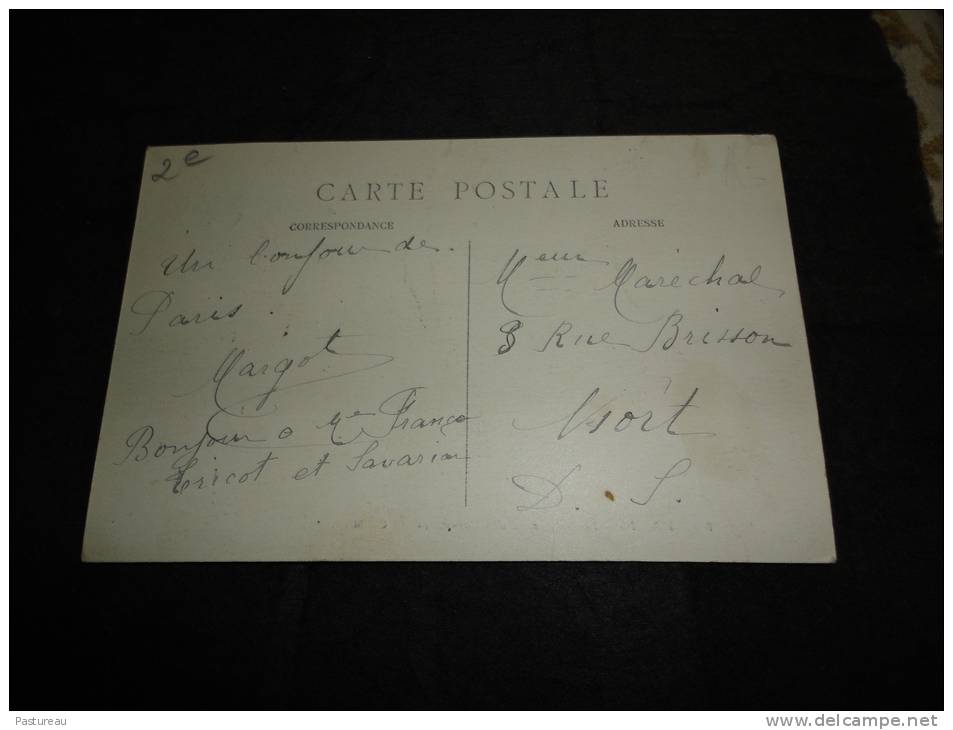 2e
CARTE POSTALE
CORRESPONDANCE
Un bonjour de
Paris.
Margot
Bonjour a Me France
Tricot et Savarian
ADRESSE
Meur Maréchal
8 Rue Brisson
Niort
D. S.
Pastureau
www.delcampe.net